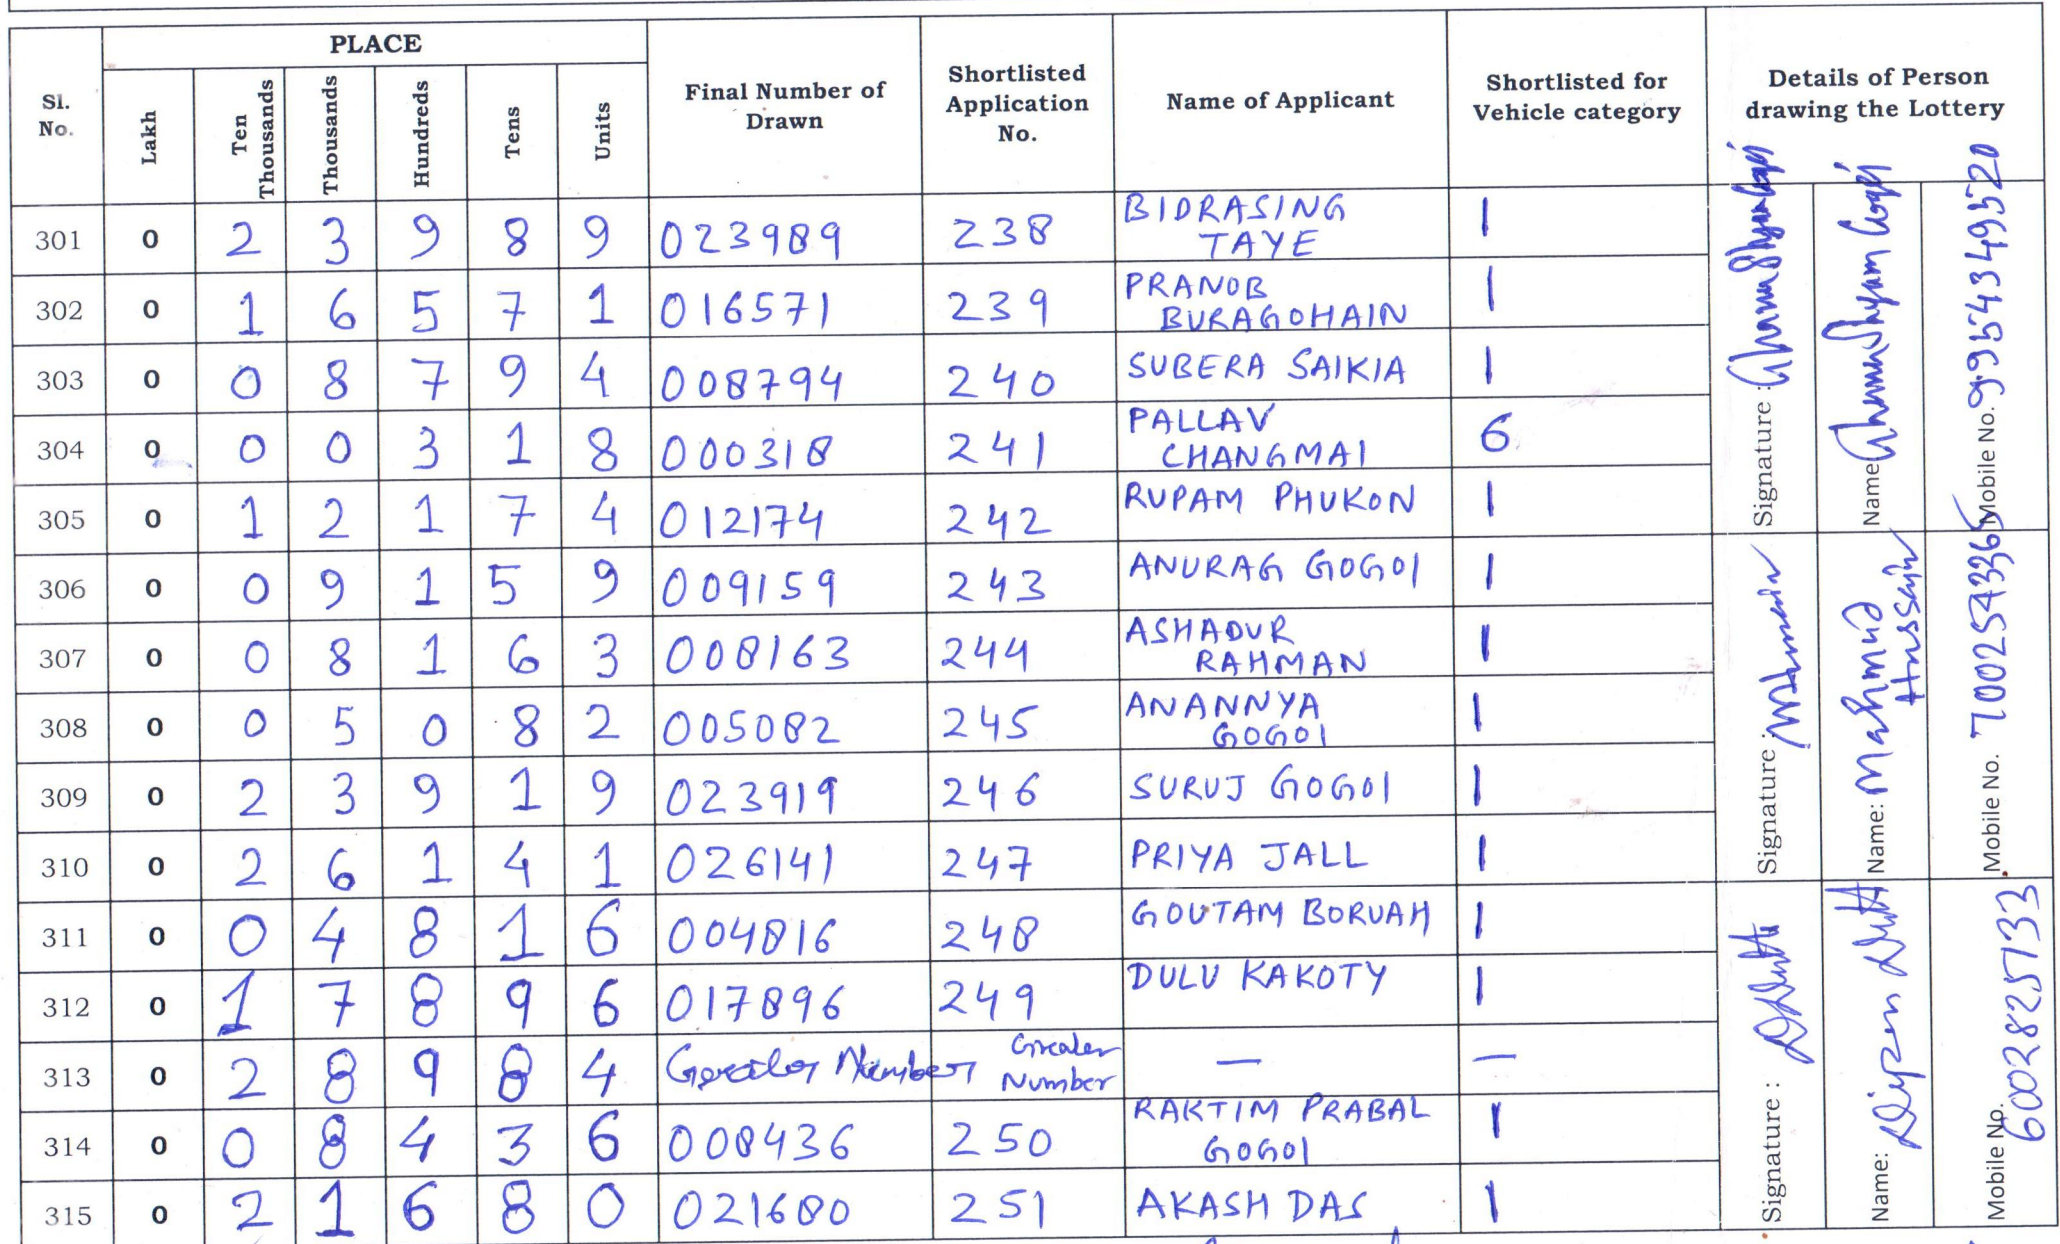 PLACE
Sl. No.
Lakh
Ten Thousands
Thousands
Hundreds
Tens
Units
Final Number of Drawn
Shortlisted Application No.
Name of Applicant
Shortlisted for Vehicle category
Details of Person drawing the Lottery
301 0 2 3 9 8 9 023989 238 BIDRASING TAYE 1
302 0 1 6 5 7 1 016571 239 PRANOB BURAGOHAIN 1
303 0 0 8 7 9 4 008794 240 SUBERA SAIKIA 1
304 0 0 0 3 1 8 000318 241 PALLAV CHANGMAI 6
305 0 1 2 1 7 4 012174 242 RUPAM PHUKON 1
306 0 0 9 1 5 9 009159 243 ANURAG GOGOI 1
307 0 0 8 1 6 3 008163 244 ASHADUR RAHMAN 1
308 0 0 5 0 8 2 005082 245 ANANNYA GOGOI 1
309 0 2 3 9 1 9 023919 246 SURUJ GOGOI 1
310 0 2 6 1 4 1 026141 247 PRIYA JALL 1
311 0 0 4 8 1 6 004816 248 GOUTAM BORUAH 1
312 0 1 7 8 9 6 017896 249 DULU KAKOTY 1
313 0 2 8 9 8 4 Number Greater Number — —
314 0 0 8 4 3 6 008436 250 RAKTIM PRABAL GOGOI 1
315 0 2 1 6 8 0 021680 251 AKASH DAS 1
Signature :
Name
Mobile No. 9954349520
Signature :
Name: Mahmud Hussain
Mobile No. 7002543365
Signature :
Name: Dipen Dutta
Mobile No. 6002825733